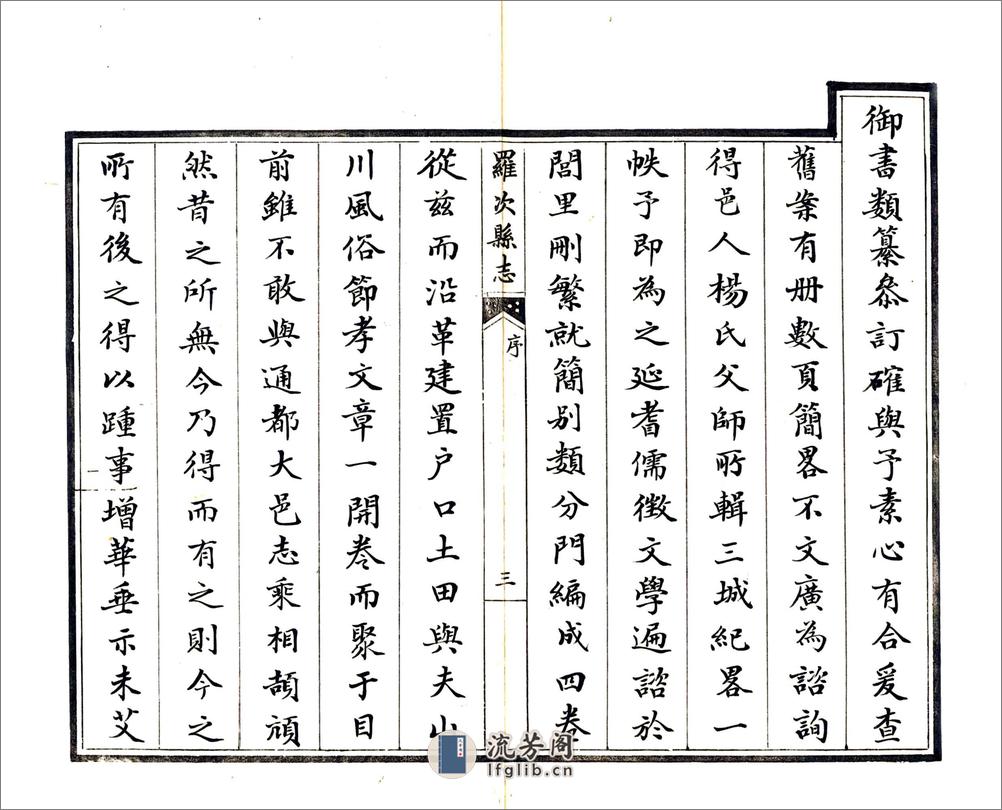 御書類纂叅訂確與予素心有合爰查
舊案有册數頁簡畧不文廣為諮詢
得邑人楊氏父師所輯三城紀畧一
帙予即為之延耆儒徵文學遍諮於
閭里刪繁就簡別類分門編成四卷
羅次縣志
序
三
從茲而沿革建置户口土田與夫山
川風俗節孝文章一開卷而聚于目
前雖不敢與通都大邑志乘相頡頏
然昔之所無今乃得而有之則今之
所有後之得以踵事增華垂示未艾
流芳阁
lfglib.cn